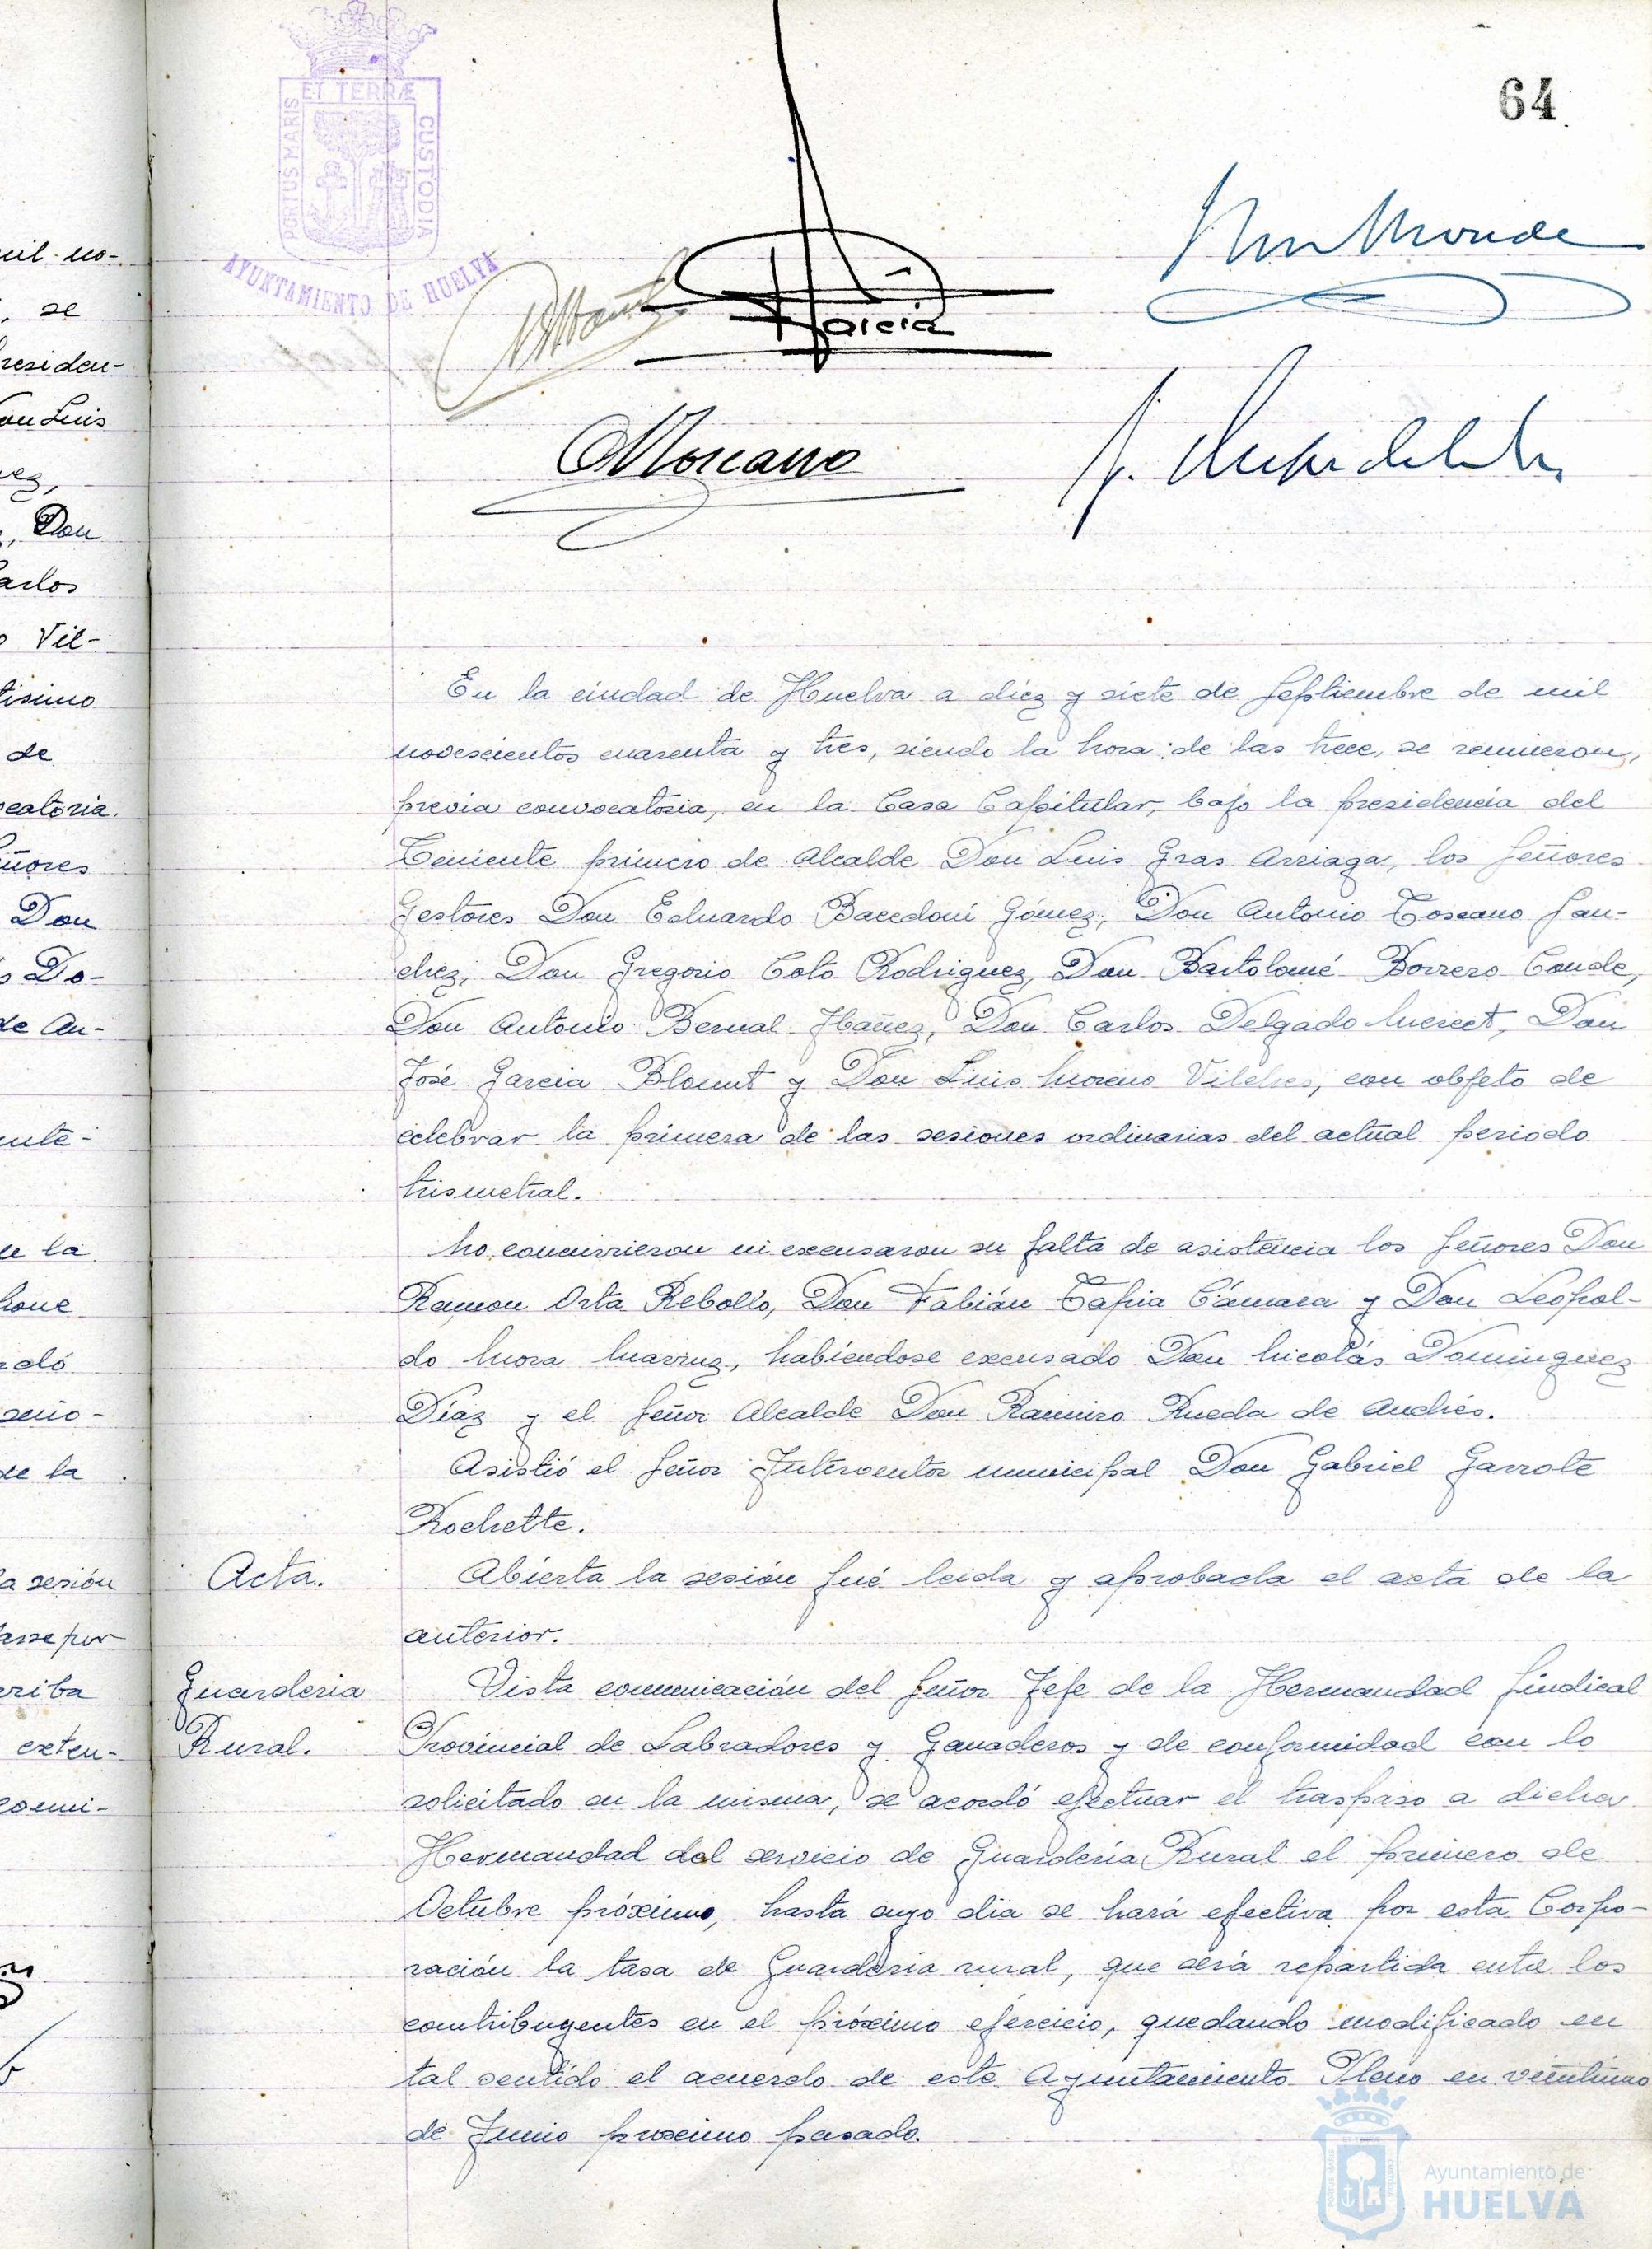 64
ET TERRÆ
PORTUS MARIS
CUSTODIA
AYUNTAMIENTO DE HUELVA
García
En la ciudad de Huelva a diez y siete de Septiembre de mil
novescientos cuarenta y tres, siendo la hora de las trece, se reunieron,
previa convocatoria, en la Casa Capitular, bajo la presidencia del
Teniente primero de Alcalde Don Luis Gras Arriaga, los Señores
Gestores Don Eduardo Baccdoni Gómez, Don Antonio Toscano San-
chez, Don Gregorio Coto Rodriguez, Don Bartolomé Borrero Conde,
Don Antonio Bernal Ibañez, Don Carlos Delgado Merect, Don
José Garcia Blount y Don Luis Moreno Vilches, con objeto de
celebrar la primera de las sesiones ordinarias del actual periodo
trismetral.
No concurrieron ni excusaron su falta de asistencia los Señores Don
Ramon Orta Rebollo, Don Fabián Tapia Cámara y Don Leopol-
do Mora Marruz, habiendose excusado Don Nicolás Dominguez
Díaz y el Señor Alcalde Don Ramiro Rueda de Andrés.
Asistió el Señor Interventor municipal Don Gabriel Garrote
Rochette.
Acta.
Abierta la sesión fué leida y aprobada el acta de la
anterior.
Guarderia
Rural.
Vista comunicación del Señor Jefe de la Hermandad Sindical
Provincial de Labradores y Ganaderos y de conformidad con lo
solicitado en la misma, se acordó efectuar el traspaso a dicha
Hermandad del servicio de Guardería Rural el primero de
Octubre próximo, hasta cuyo dia se hará efectiva por esta Corpo-
ración la tasa de Guardería rural, que será repartida entre los
contribuyentes en el próximo ejercicio, quedando modificado en
tal sentido el acuerdo de este Ayuntamiento Pleno en veintiuno
de Junio proximo pasado.
Ayuntamiento de
HUELVA